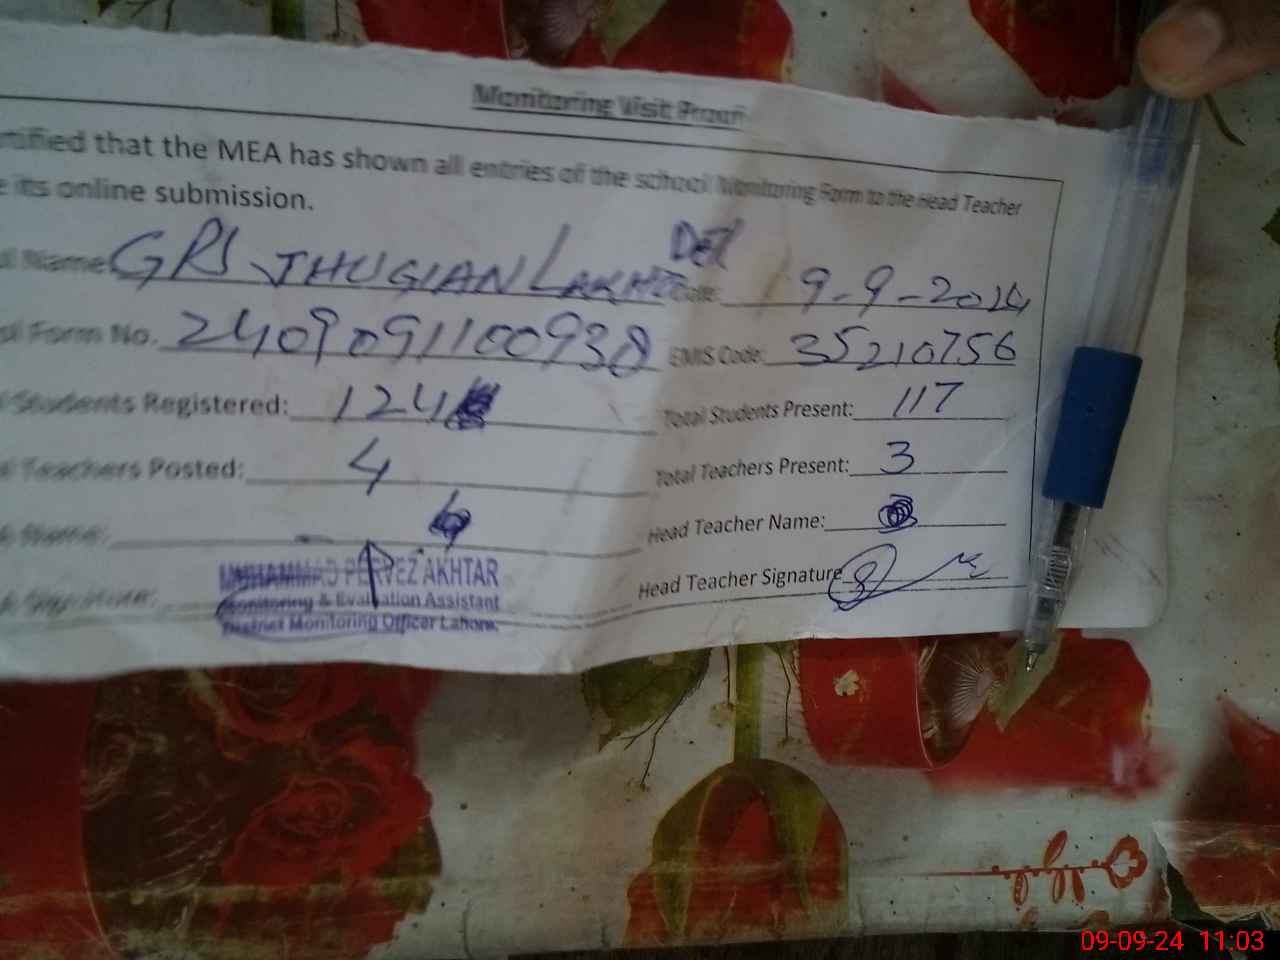 Monitoring Visit Proof
rtified that the MEA has shown all entries of the school Monitoring Form to the Head Teacher
e its online submission.
l Name GPS JHUGIAN Date: 9-9-2024
l Form No. 2409091100938 EMIS Code: 35210756
l Students Registered: 124 Total Students Present: 117
l Teachers Posted: 4 Total Teachers Present: 3
Name: Head Teacher Name:
Head Teacher Signature
MUHAMMAD PERVEZ AKHTAR
Monitoring & Evaluation Assistant
District Monitoring Officer Lahore.
09-09-24 11:03